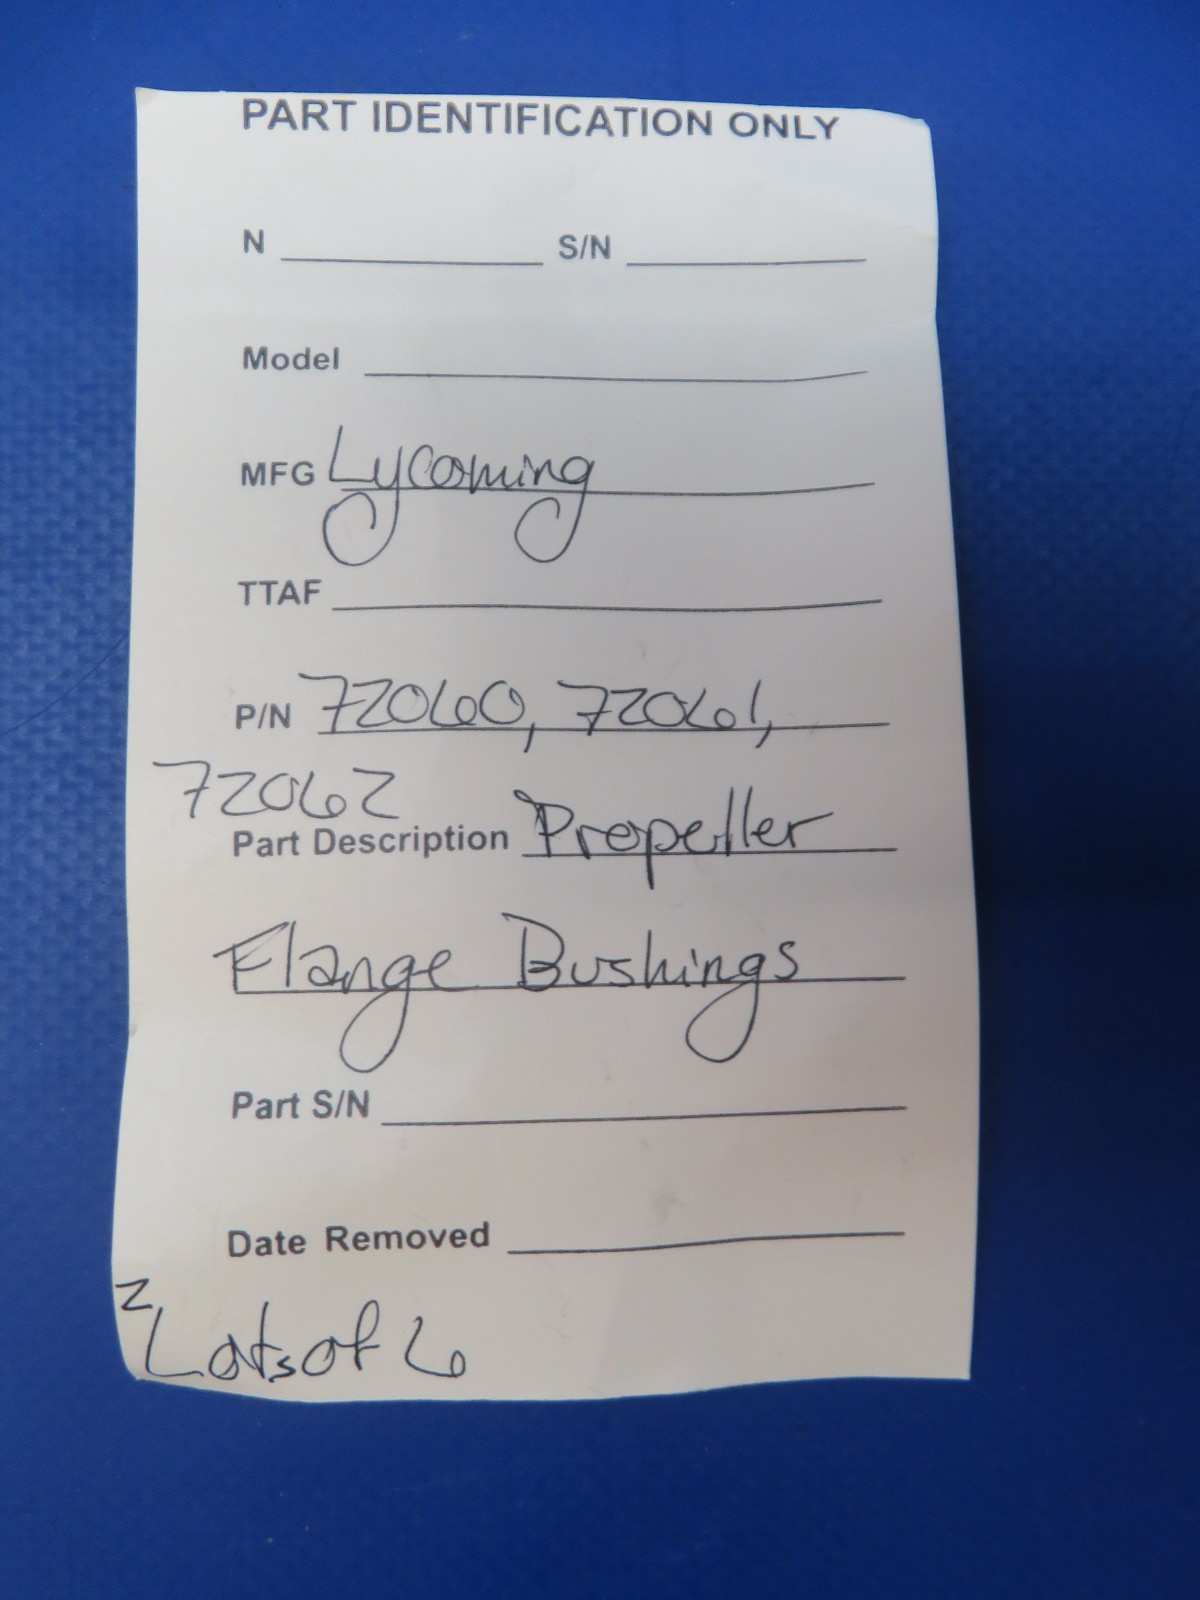 PART IDENTIFICATION ONLY
N S/N
Model
MFG Lycoming
TTAF
P/N 72060, 72061,
72062
Part Description Propeller
Flange Bushings
Part S/N
Date Removed
2
Lots of 6